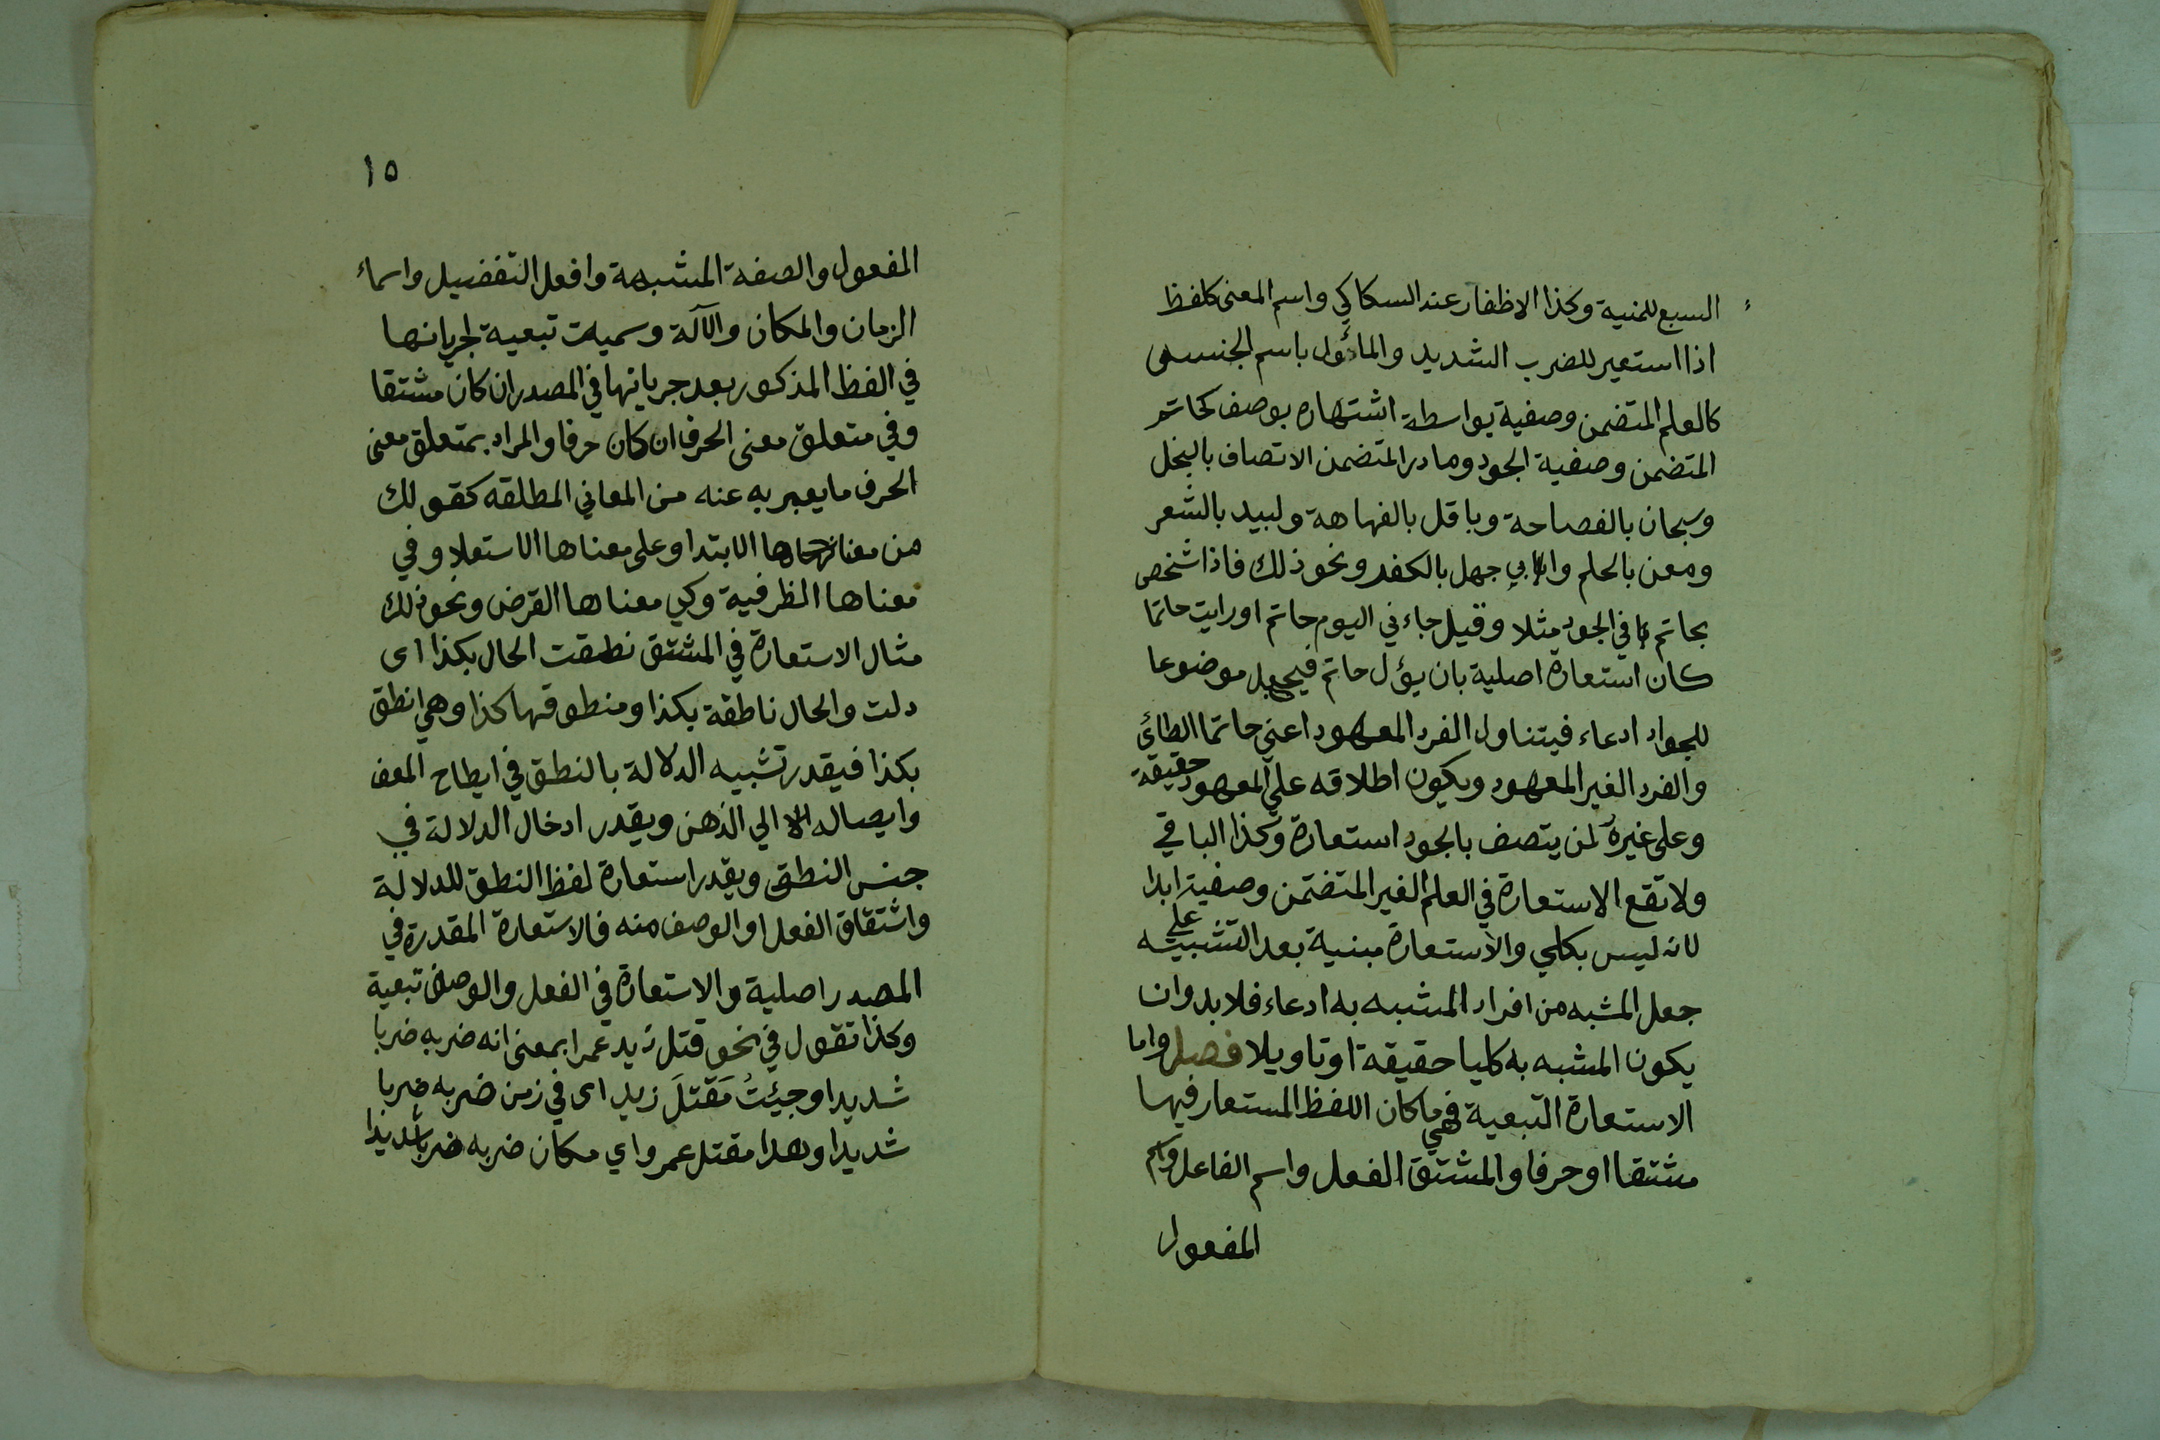 السبع للمنية وكذا الاظفار عند السكاكي واسم المعنى كلفظ
اذا استعير للضرب الشديد والمأول باسم الجنس
كالعلم المتضمن وصفية بواسطة اشتهاره بوصف كحاتم
المتضمن وصفية الجود ومادر المتضمن الاتصاف بالبخل
وسحبان بالفصاحة وباقل بالفهاهة ولبيد بالشعر
ومعن بالحلم وابي جهل بالكفر ونحو ذلك فاذا شخص
بحاتم في الجود مثلا وقيل جاءني اليوم حاتم او رايت حاتما
كان استعارة اصلية بان يؤل حاتم فيجعل موضوعا
للجواد ادعاء فيتناول الفرد المعهود اعني حاتما الطائي
والفرد الغير المعهود ويكون اطلاقه على المعهود حقيقة
وعلى غيره لمن يتصف بالجود استعارة وكذا الباقي
ولا تقع الاستعارة في العلم الغير المتضمن وصفية ابدا
لانه ليس بكلي والاستعارة مبنية بعد التشبيه على
جعل المشبه من افراد المشبه به ادعاء فلا بد وان
يكون المشبه به كليا حقيقة او تاويلا فصل واما
الاستعارة التبعية فهي ما كان اللفظ المستعار فيها
مشتقا او حرفا والمشتق الفعل واسم الفاعل واسم
المفعول
١٥
المفعول والصفة المشبهة وافعل التفضيل واسماء
الزمان والمكان والآلة وسميت تبعية لجريانها
في الفظ المذكور بعد جريانها في المصدر ان كان مشتقا
وفي متعلق معنى الحرف ان كان حرفا والمراد بمتعلق معنى
الحرف ما يعبر به عنه من المعاني المطلقه كقولك
من معناها الابتدا وعلى معناها الاستعلا وفي
معناها الظرفية وكي معناها الغرض ونحو ذلك
مثال الاستعارة في المشتق نطقت الحال بكذا اى
دلت والحال ناطقة بكذا ومنطوقها كذا وهي انطق
بكذا فيقدر تشبيه الدلالة بالنطق في ايطاح المعنى
وايصاله الى الذهن ويقدر ادخال الدلالة في
جنس النطق ويقدر استعارة لفظ النطق للدلالة
واشتقاق الفعل او الوصف منه فالاستعارة المقدرة في
المصدر اصلية والاستعارة في الفعل والوصف تبعية
وكذا تقول في نحو قتل زيد عمرا بمعنى انه ضربه ضربا
شديدا وجيئتُ مَقتلَ زيد اى في زمن ضربه ضربا
شديدا وهدا مقتل عمرو اي مكان ضربه ضربا شديدا